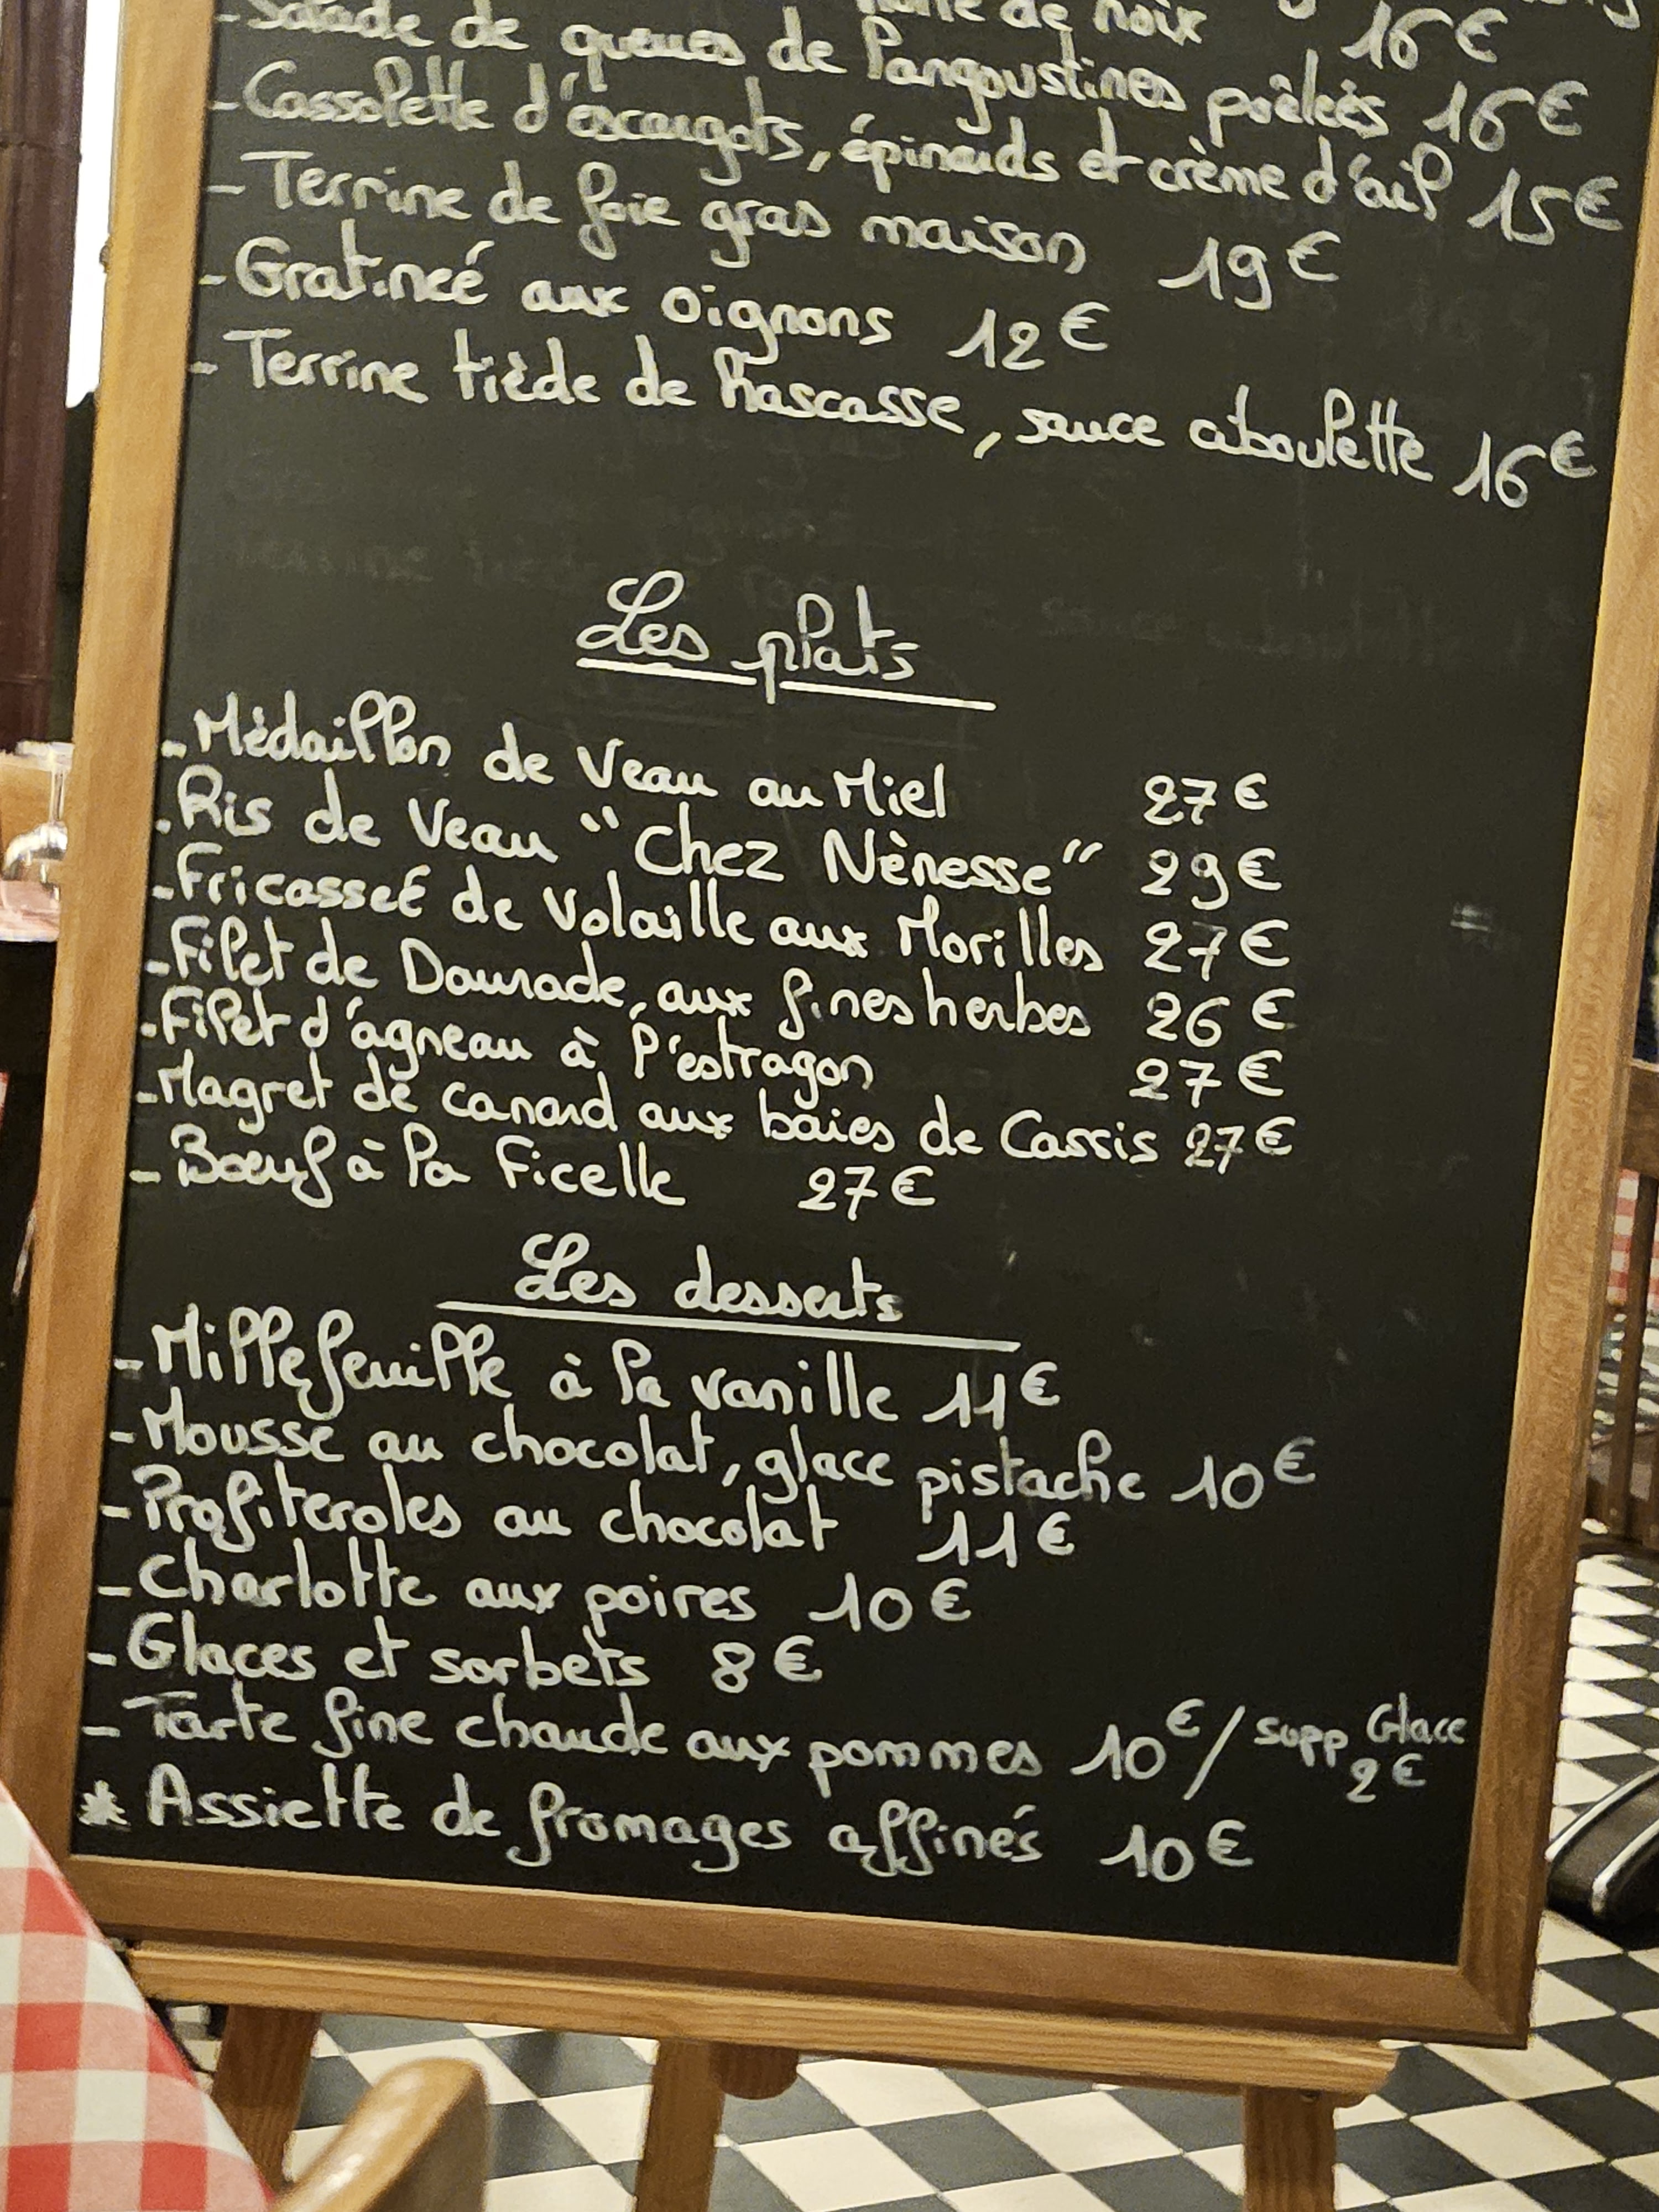 de noix 16€
- Salade de queues de langoustines poêlées 16€
- Cassolette d'escargots, épinards et crème d'ail 15€
- Terrine de foie gras maison 19€
- Gratineé aux oignons 12€
- Terrine tiède de Rascasse, sauce ciboulette 16€
Les plats
- Médaillon de Veau au Miel 27€
- Ris de Veau "Chez Nènesse" 29€
- Fricasseé de Volaille aux Morilles 27€
- Filet de Daurade, aux fines herbes 26€
- Filet d'agneau à l'estragon 27€
- Magret de canard aux baies de Cassis 27€
- Bœuf à la Ficelle 27€
Les desserts
- Millefeuille à la vanille 11€
- Mousse au chocolat, glace pistache 10€
- Profiteroles au chocolat 11€
- Charlotte aux poires 10€
- Glaces et sorbets 8€
- Tarte fine chaude aux pommes 10€ / supp Glace 2€
* Assiette de fromages affinés 10€